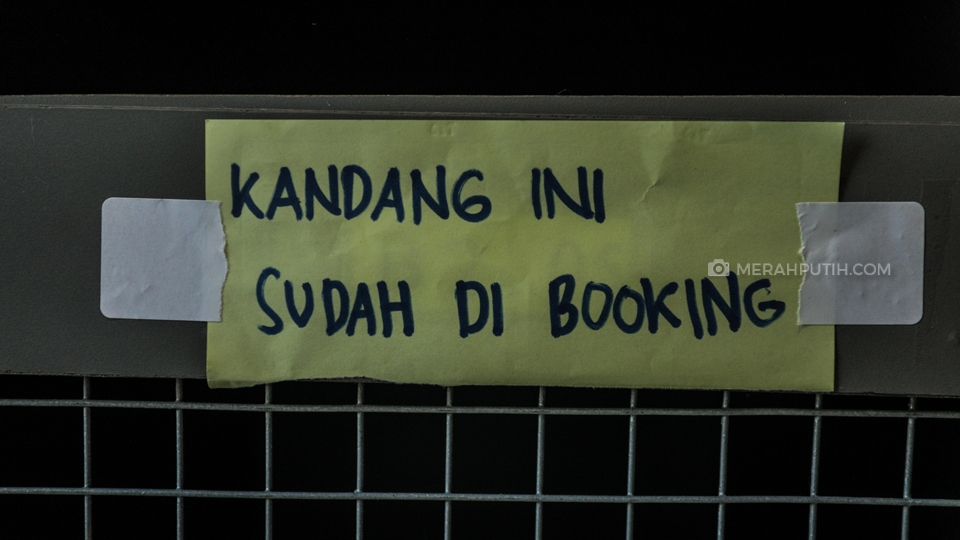 KANDANG INI
SUDAH DI BOOKING
MERAHPUTIH.COM